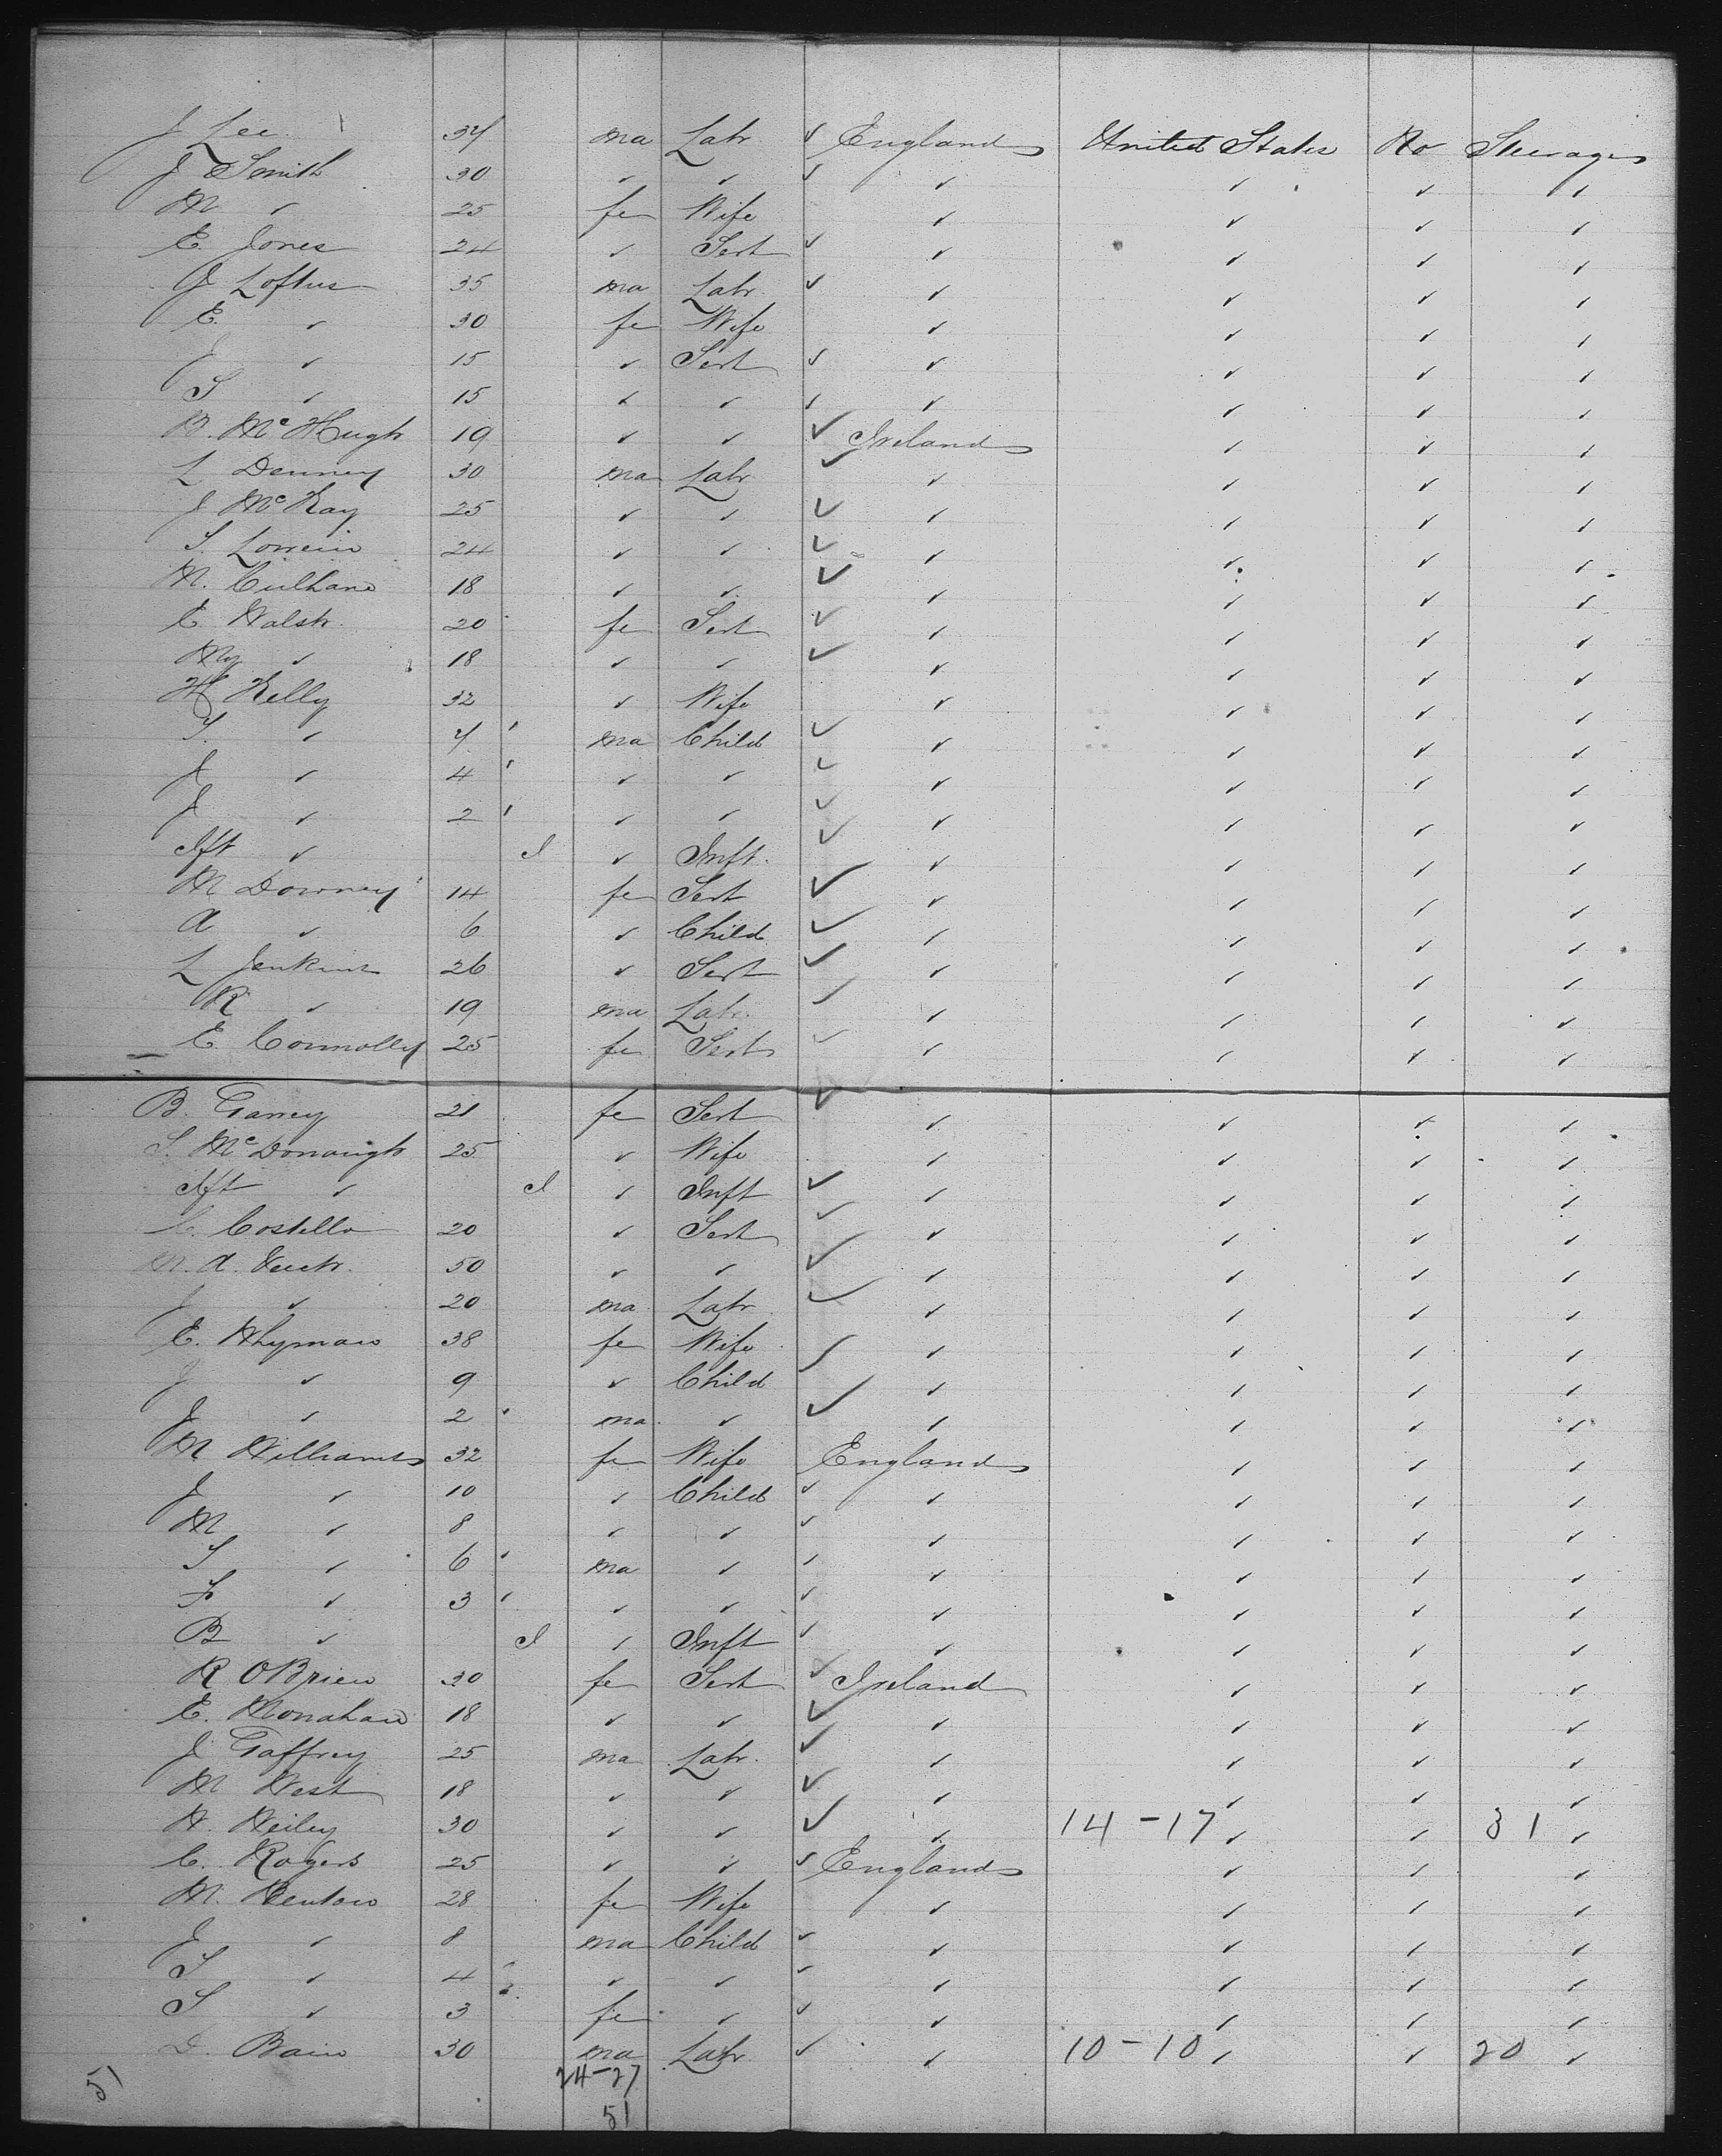 J Lee 34 ma Labr ✓ England United States No Steerage
J Smith 30 ✓ ✓ ✓ ✓ ✓ ✓ ✓
M ✓ 25 fe Wife ✓ ✓ ✓ ✓
E. Jones 24 ✓ Sert ✓ ✓ ✓ ✓ ✓
J Loftus 35 ma Labr ✓ ✓ ✓ ✓ ✓
E. ✓ 30 fe Wife ✓ ✓ ✓ ✓
J ✓ 15 ✓ Sert ✓ ✓ ✓ ✓ ✓
S ✓ 15 ✓ ✓ ✓ ✓ ✓ ✓ ✓
B. McHugh 19 ✓ ✓ ✓ Ireland ✓ ✓ ✓
L Denney 30 ma Labr ✓ ✓ ✓ ✓ ✓
J McKay 25 ✓ ✓ ✓ ✓ ✓ ✓ ✓
S. 24 ✓ ✓ ✓ ✓ ✓ ✓ ✓
M. Culhane 18 ✓ ✓ ✓ ✓ ✓ ✓ ✓
E Walsh 20 fe Sert ✓ ✓ ✓ ✓ ✓
My ✓ 18 ✓ ✓ ✓ ✓ ✓ ✓ ✓
H Kelly 32 ✓ Wife ✓ ✓ ✓ ✓
T. ✓ 7 ma Child ✓ ✓ ✓ ✓ ✓
J ✓ 4 ✓ ✓ ✓ ✓ ✓ ✓ ✓
J ✓ 2 ✓ ✓ ✓ ✓ ✓ ✓ ✓
Ift ✓ I ✓ Inft. ✓ ✓ ✓ ✓ ✓
M Downey 14 fe Sert ✓ ✓ ✓ ✓ ✓
A ✓ 6 ✓ Child ✓ ✓ ✓ ✓ ✓
L Jenkins 26 ✓ Sert ✓ ✓ ✓ ✓ ✓
R ✓ 19 ma Labr. ✓ ✓ ✓ ✓ ✓
E Connolly 25 fe Sert ✓ ✓ ✓ ✓ ✓
B. Garvey 21 fe Sert ✓ ✓ ✓ ✓ ✓
S. McDonaugh 25 ✓ Wife ✓ ✓ ✓ ✓
Ift ✓ I ✓ Inft ✓ ✓ ✓ ✓ ✓
C. Costello 20 ✓ Sert ✓ ✓ ✓ ✓ ✓
M. A. 50 ✓ ✓ ✓ ✓ ✓ ✓ ✓
J ✓ 20 ma Labr ✓ ✓ ✓ ✓ ✓
E. Whyman 38 fe Wife ✓ ✓ ✓ ✓
J ✓ 9 ✓ Child ✓ ✓ ✓ ✓ ✓
J ✓ 2 ma ✓ ✓ ✓ ✓ ✓ ✓
M Williams 32 fe Wife England ✓ ✓ ✓
J ✓ 10 ✓ Child ✓ ✓ ✓ ✓ ✓
M ✓ 8 ✓ ✓ ✓ ✓ ✓ ✓ ✓
S ✓ 6 ma ✓ ✓ ✓ ✓ ✓ ✓
F ✓ 3 ✓ ✓ ✓ ✓ ✓ ✓ ✓
B ✓ I ✓ Inft ✓ ✓ ✓ ✓ ✓
R OBrien 30 fe Sert ✓ Ireland ✓ ✓ ✓
E. Monahan 18 ✓ ✓ ✓ ✓ ✓ ✓ ✓
J Gaffrey 25 ma Labr. ✓ ✓ ✓ ✓ ✓
M West 18 ✓ ✓ ✓ ✓ ✓ ✓ ✓
30 ✓ ✓ ✓ ✓ 14-17 ✓ ✓ 31 ✓
C. Rogers 25 ✓ ✓ ✓ England ✓ ✓ ✓
M. 28 fe Wife ✓ ✓ ✓ ✓
J ✓ 8 ma Child ✓ ✓ ✓ ✓ ✓
S ✓ 4 ✓ ✓ ✓ ✓ ✓ ✓ ✓
S ✓ 3 fe ✓ ✓ ✓ ✓ ✓ ✓
D. Bain 30 ma Labr. ✓ ✓ 10-10 ✓ ✓ 20 ✓
24-27
51
51